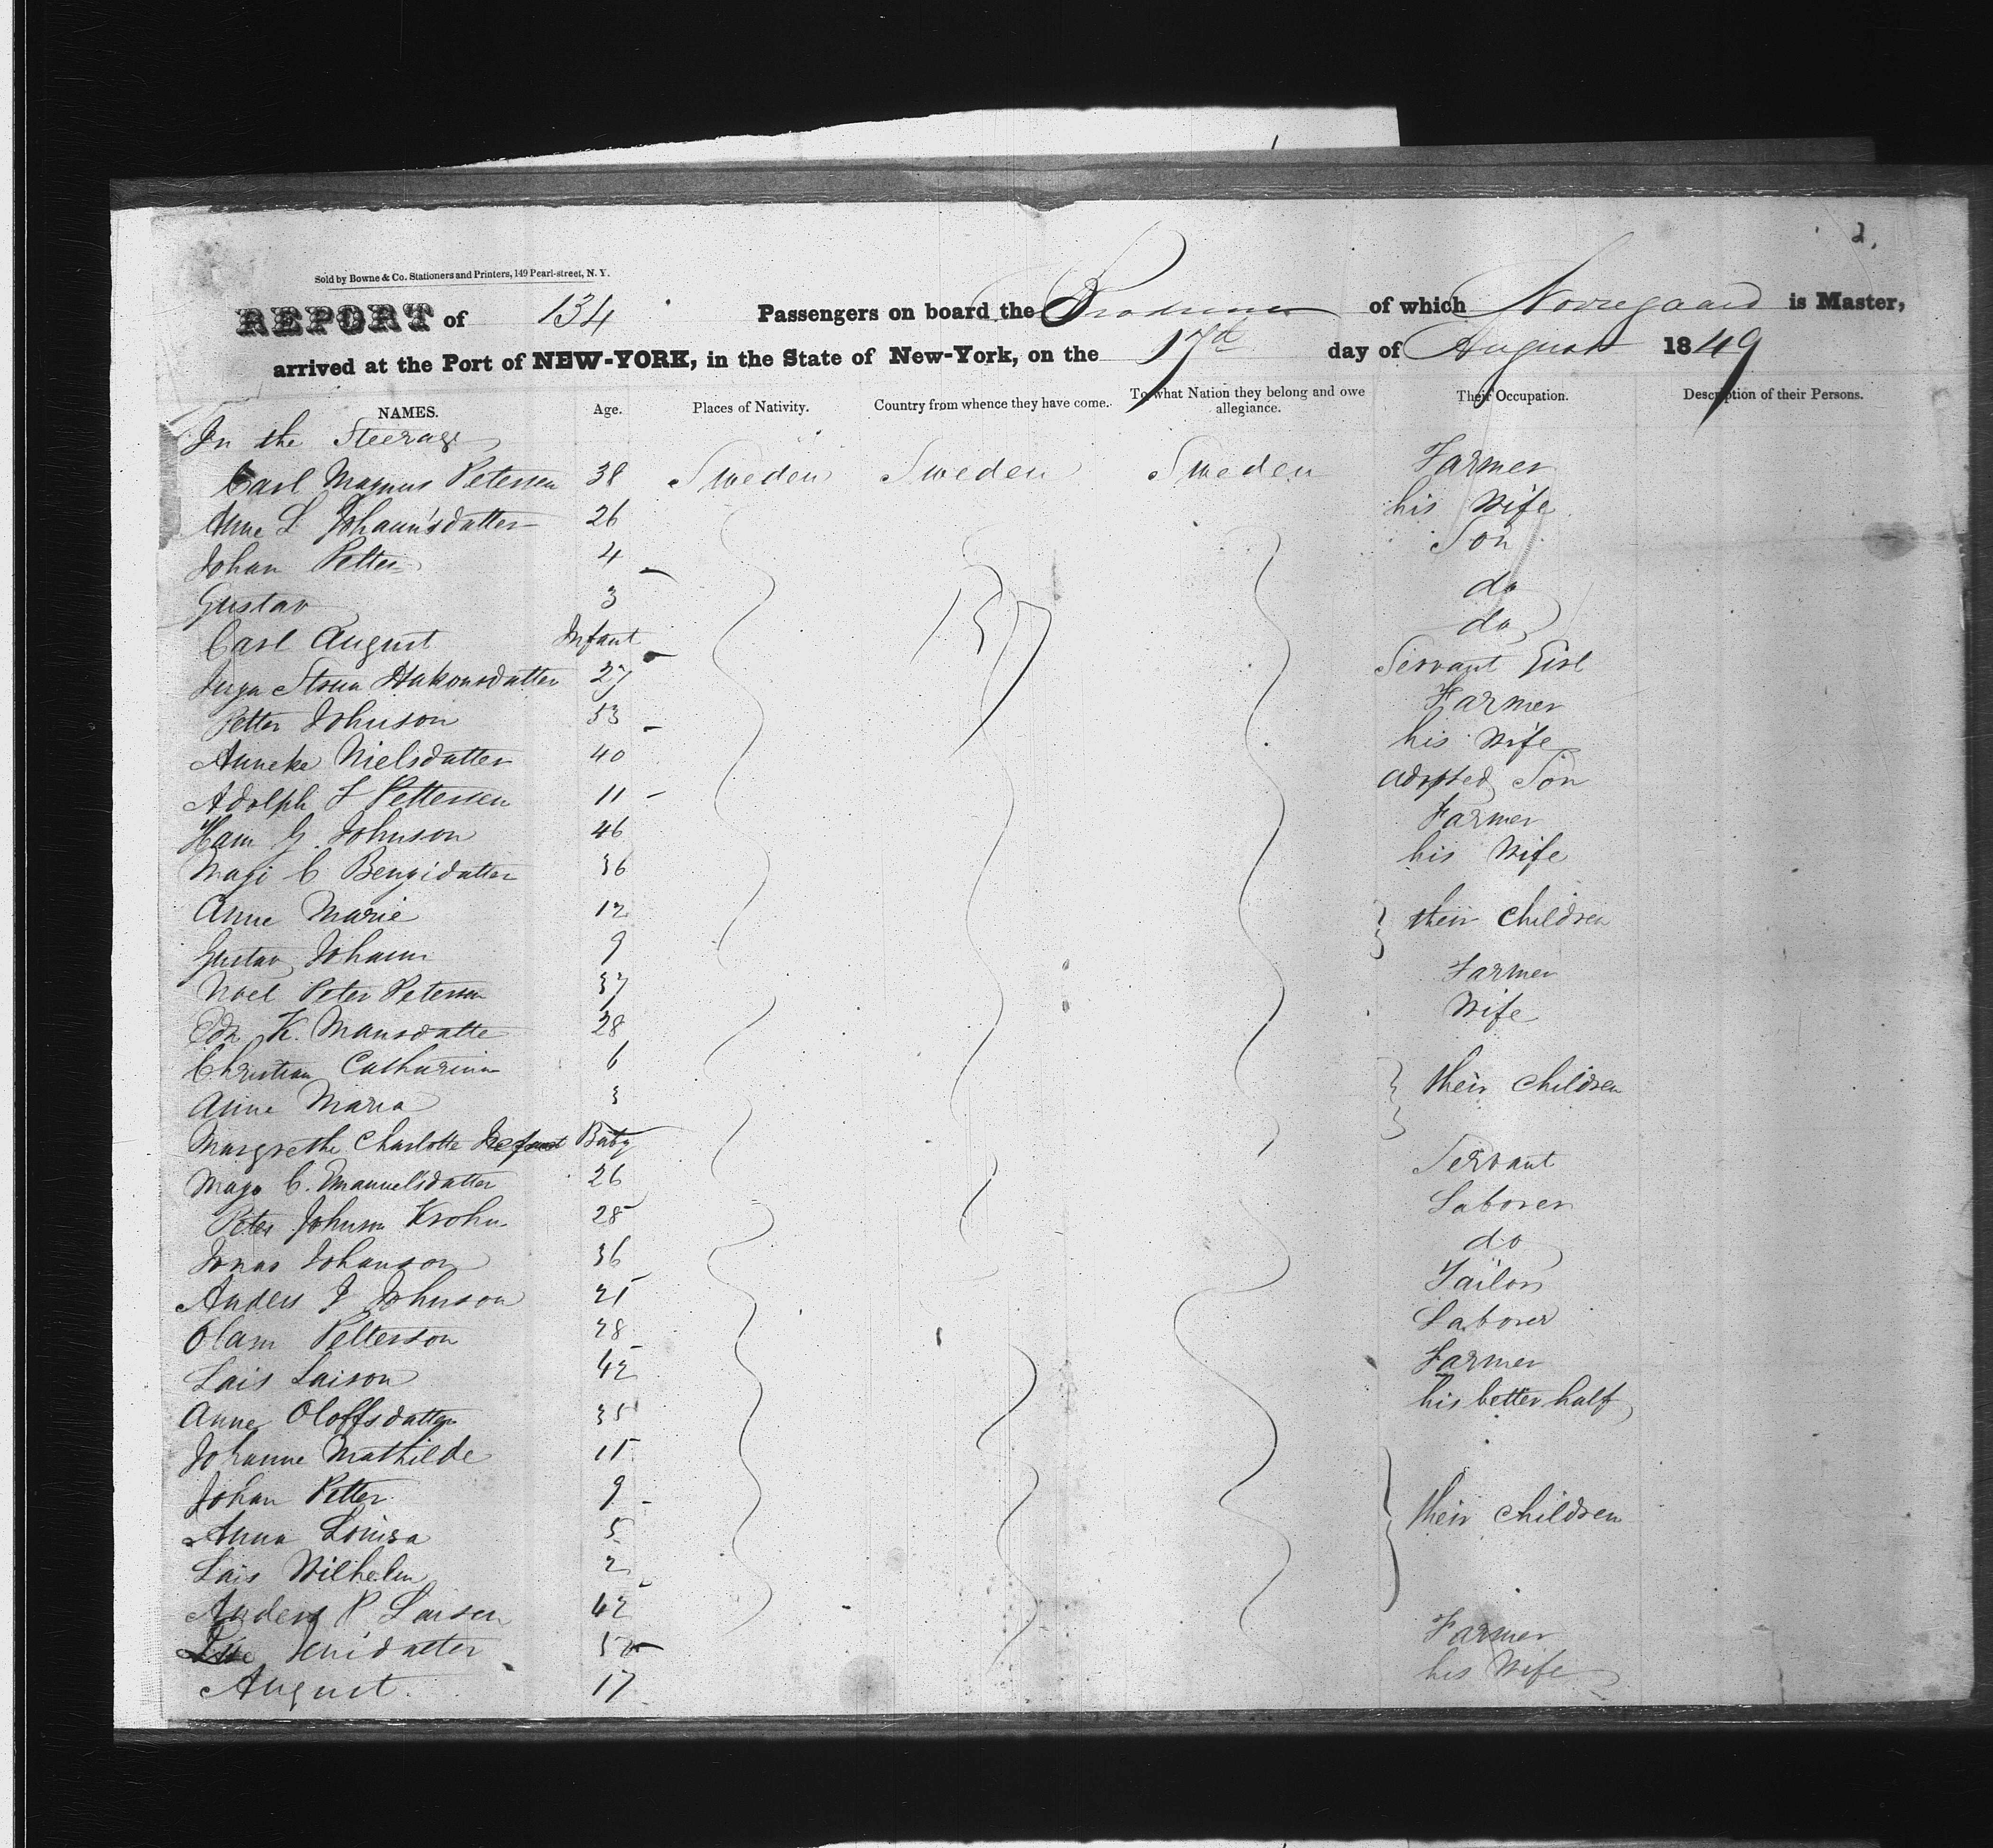 2.
Sold by Bowne & Co. Stationers and Printers, 149 Pearl-street, N. Y.
REPORT of 134 Passengers on board the of which Norregaard is Master,
arrived at the Port of NEW-YORK, in the State of New-York, on the 17th day of August 1849
NAMES. Age. Places of Nativity. Country from whence they have come. To what Nation they belong and owe allegiance. Their Occupation. Description of their Persons.
In the Steerage
Carl Magnus Petersen 38 Sweden Sweden Sweden Farmer
Anne L Johannsdatter 26 his Wife
Johan Petter 4 Son
Gustav 3 do
Carl August Infant do
Hakonsdatter 27 Servant Girl
Petter Johnson 53 Farmer
Anneke Nielsdatter 40 his Wife
Adolph L Pettersen 11 adopted Son
Hans G. Johnson 46 Farmer
C 36 his Wife
Anne Marie 12 their children
Gustav Johann 9
Noel Peter Peterson 37 Farmer
K. Mansdatte 28 Wife
Christian Catharina 6 their children
Anne Maria 3
Margrethe Charlotte Baby
C. Emanuelsdatter 26 Servant
Peter Johnson Krohn 28 Laborer
Jonas Johanson 36 do
Anders J Johnson 21 Tailor
Petterson 28 Laborer
Lars Larson 42 Farmer
Anne Oloffsdatter 35 his better half
Johanne Mathilde 11
Johan Petter 9 their children
Anna Louisa 5
Lars Wilhelm 2
Anders P Larsen 42 Farmer
his Wife
August 17